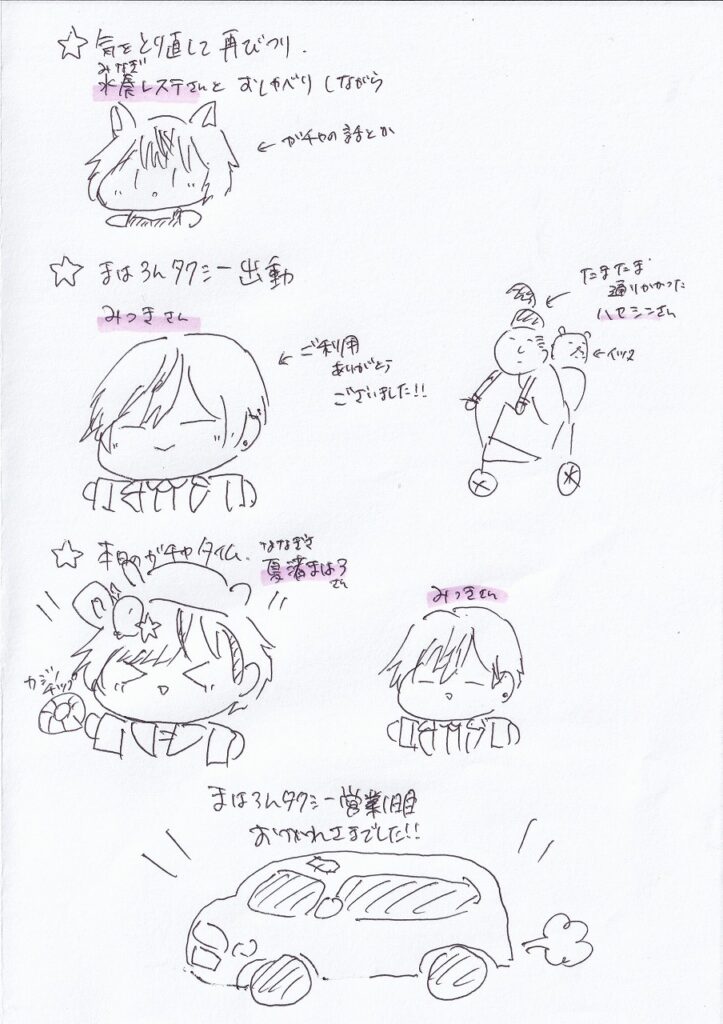 ☆ 気をとり直して再びつり.
みなぎ
水凪レステさんと おしゃべりしながら
← ガチャの話とか
☆ まはろんタクシー出動
みつきさん
← ご利用
ありがとう
ございました!!
たまたま
通りかかった
ハセシンさん
← イツヌ
☆ 本日のガチャタイム.
ななぎさ
夏渚まはろ
さん
カジノ
チップ
みつきさん
まはろんタクシー営業1日目
おつかれさまでした!!